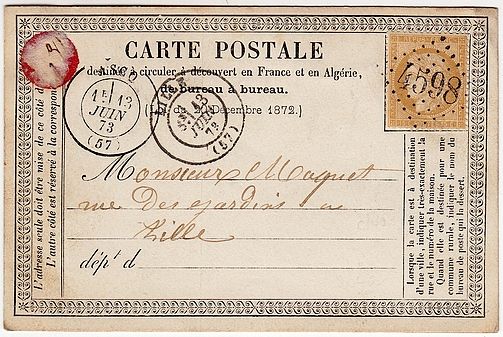 CARTE POSTALE
destinée à circuler à découvert en France et en Algérie,
de bureau à bureau.
(Loi du 20 Décembre 1872.)
1E 13
JUIN
73
(57)
LILLE
13
JUIN
73
(57)
4598
Monsieur Maquet
rue Desjardins en
Lille
dépt d
L'adresse seule doit être mise de ce côté d
L'autre côté est réservé à la correspon
Lorsque la carte est à destination
d'une ville, indiquer très-exactement la
rue et le numéro de la maison.
Quand elle est destinée pour une
commune rurale, indiquer le nom du
bureau de poste qui la dessert.